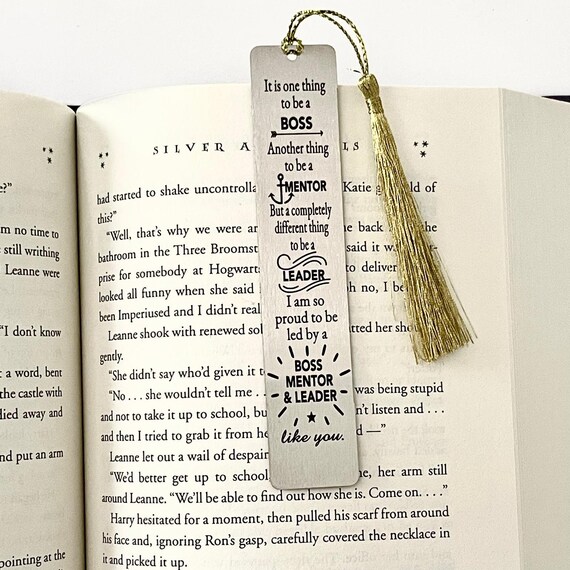 It is one thing
to be a
BOSS
Another thing
to be a
MENTOR
But a completely
different thing
to be a
LEADER
I am so
proud to be
led by a
BOSS
MENTOR
& LEADER
like you.
?"
m no time to
still writhing
Leanne were
"I don't know
a word, bent
the castle with
died away and
and put an arm
pointing at the
SILVER A LS
had started to shake uncontrolla Katie of
this?"
"Well, that's why we were ar back
bathroom in the Three Broomst said it w
prise for somebody at Hogwart to deliver
looked all funny when she said oh no, I
been Imperiused and I didn't real
Leanne shook with renewed sol tted her shou
gently.
"She didn't say who'd given it t
"No . . . she wouldn't tell me . . was being stupid
and not to take it up to school, bu n't listen and . . .
and then I tried to grab it from he d —"
Leanne let out a wail of despair
"We'd better get up to school me, her arm still
around Leanne. "We'll be able to find out how she is. Come on. . . ."
Harry hesitated for a moment, then pulled his scarf from around
his face and, ignoring Ron's gasp, carefully covered the necklace in
it and picked it up.